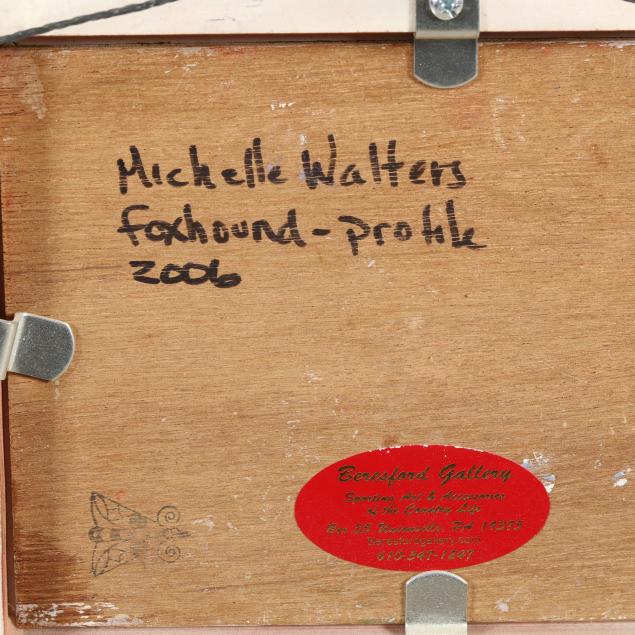 Michelle Walters
foxhound - profile
2006
Beresford Gallery
Sporting Art & Accessories
of the Country Life
Box 25, Unionville, PA 19375
beresfordgallery.com
610-347-1247